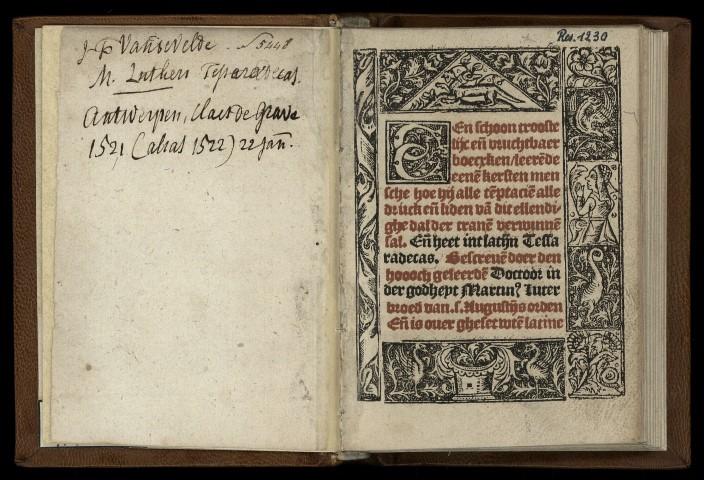 J-P Vandevelde. 5448
M. Lutheri Tessaradecas.
Antwerpen, Claes de Grave
1521 (alias 1522) 22 Jan̄.
Res. 1230
Een schoon trooste
lijc en̄ vruchtbaer
boecxken/leerēde
eenē kersten men
sche hoe hij alle tēptaciē alle
druck en̄ liden vā dit ellendi-
ghe dal der tranē verwinnē
sal. En̄ heet int latijn Tessa
radecas. Gescreuē doer den
hoooch geleerdē Doctoor in
der godheyt Martin9 Luter
broed van .s. Augustijs orden
En̄ is ouer gheset wtē latine